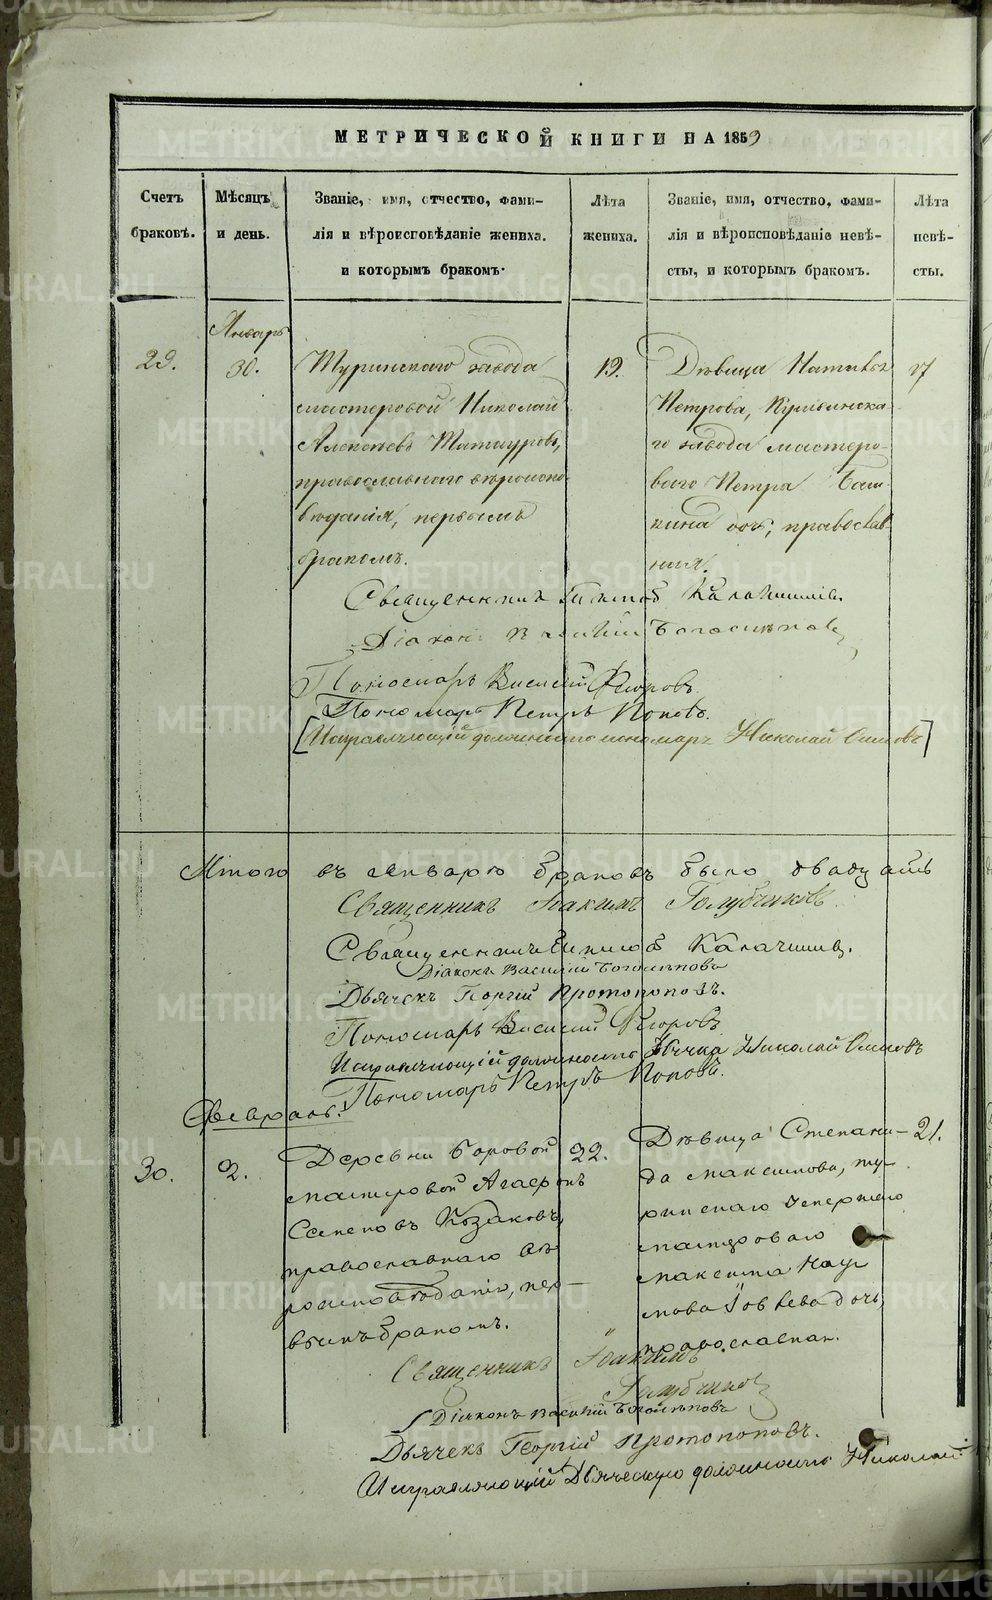 МЕТРИЧЕСКОЙ КНИГИ НА 1859
Счетъ браковъ.
Мѣсяцъ и день.
Званіе, имя, отчество, фами-
лія и вѣроисповѣданіе жениха.
и которымъ бракомъ.
Лѣта жениха.
Званіе, имя, отчество, фами-
лія и вѣроисповѣданіе невѣ-
сты, и которымъ бракомъ.
Лѣта невѣ-
сты.
Январь
29.
30.
Туринскаго завода
мастеровой Николай
Алексѣевъ
православнаго вѣроиспо-
вѣданія, первымъ
бракомъ.
19.
Дѣвица
Петрова, Кушвинска-
го завода мастеро-
ваго Петра
дочь, православ-
ная.
17
Священникъ
Діаконъ Василій Боголѣповъ
Пономарь Василій Флоровъ.
Пономарь Петръ Поповъ.
[Исправляющій должность пономаря Николай]
Итого въ январѣ браковъ было двадцать
Священникъ Іоакимъ Голубчиковъ
Священникъ
Діаконъ Василій Боголѣповъ
Дьячекъ Георгій Протопоповъ.
Пономарь Василій Флоровъ
Исправляющій должность дьячка Николай
Пономарь Петръ Поповъ.
Февраль.
30.
2.
Деревни Боровой
мастеровой Агафонъ
Семеновъ Козаковъ,
православнаго вѣ-
роисповѣданія, пер-
вымъ бракомъ.
22.
Дѣвица Степани-
да Максимова, ту-
ринскаго
мастероваго
Максима Нау-
мова дочь,
православная.
21.
Священникъ Іоакимъ
Голубчиковъ
Діаконъ Василій Боголѣповъ
Дьячекъ Георгій Протопоповъ.
Исправляющій Дьяческую должность Николай
METRIKI.GASO-URAL.RU